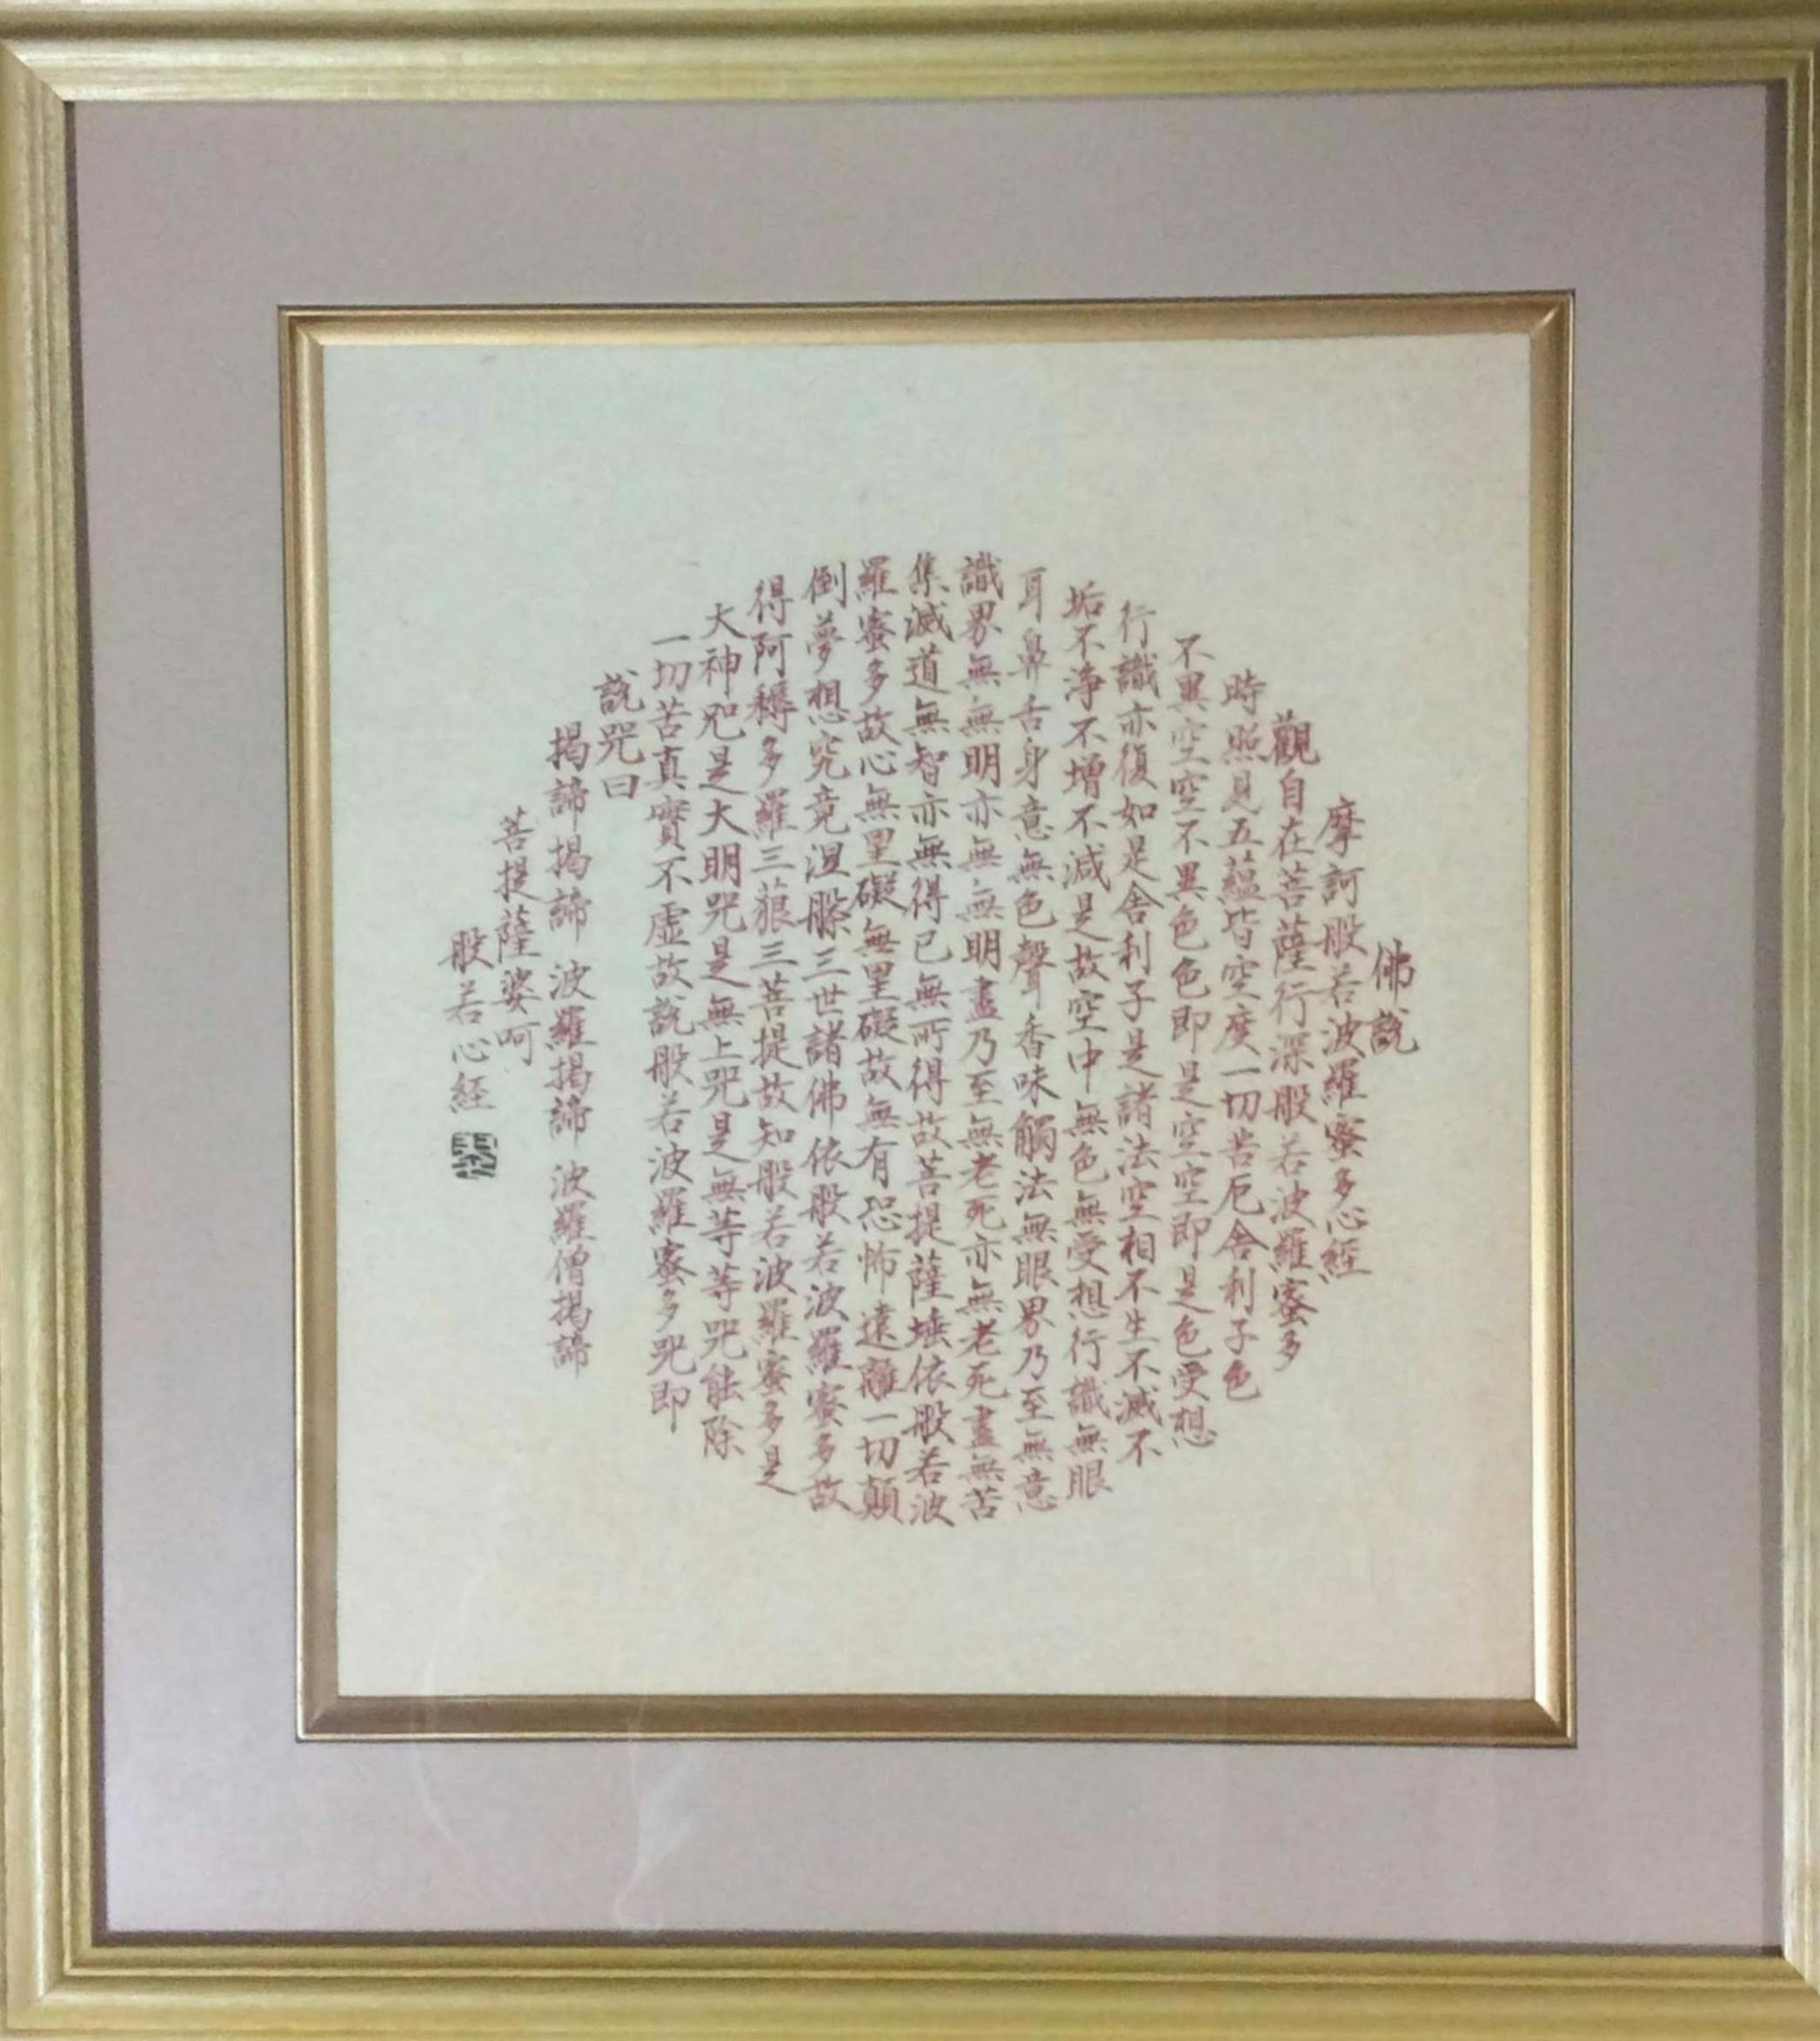 佛說
摩訶般若波羅蜜多心經
觀自在菩薩行深般若波羅蜜多
時照見五蘊皆空度一切苦厄舍利子色
不異空空不異色色即是空空即是色受想
行識亦復如是舍利子是諸法空相不生不滅不
垢不淨不增不減是故空中無色無受想行識無眼
耳鼻舌身意無色聲香味觸法無眼界乃至無意
識界無無明亦無無明盡乃至無老死亦無老死盡無苦
集滅道無智亦無得已無所得故菩提薩埵依般若波
羅蜜多故心無罣礙無罣礙故無有恐怖遠離一切顛
倒夢想究竟涅槃三世諸佛依般若波羅蜜多故
得阿耨多羅三藐三菩提故知般若波羅蜜多是
大神咒是大明咒是無上咒是無等等咒能除
一切苦真實不虛故說般若波羅蜜多咒即
說咒曰
揭諦揭諦 波羅揭諦 波羅僧揭諦
菩提薩婆呵
般若心經